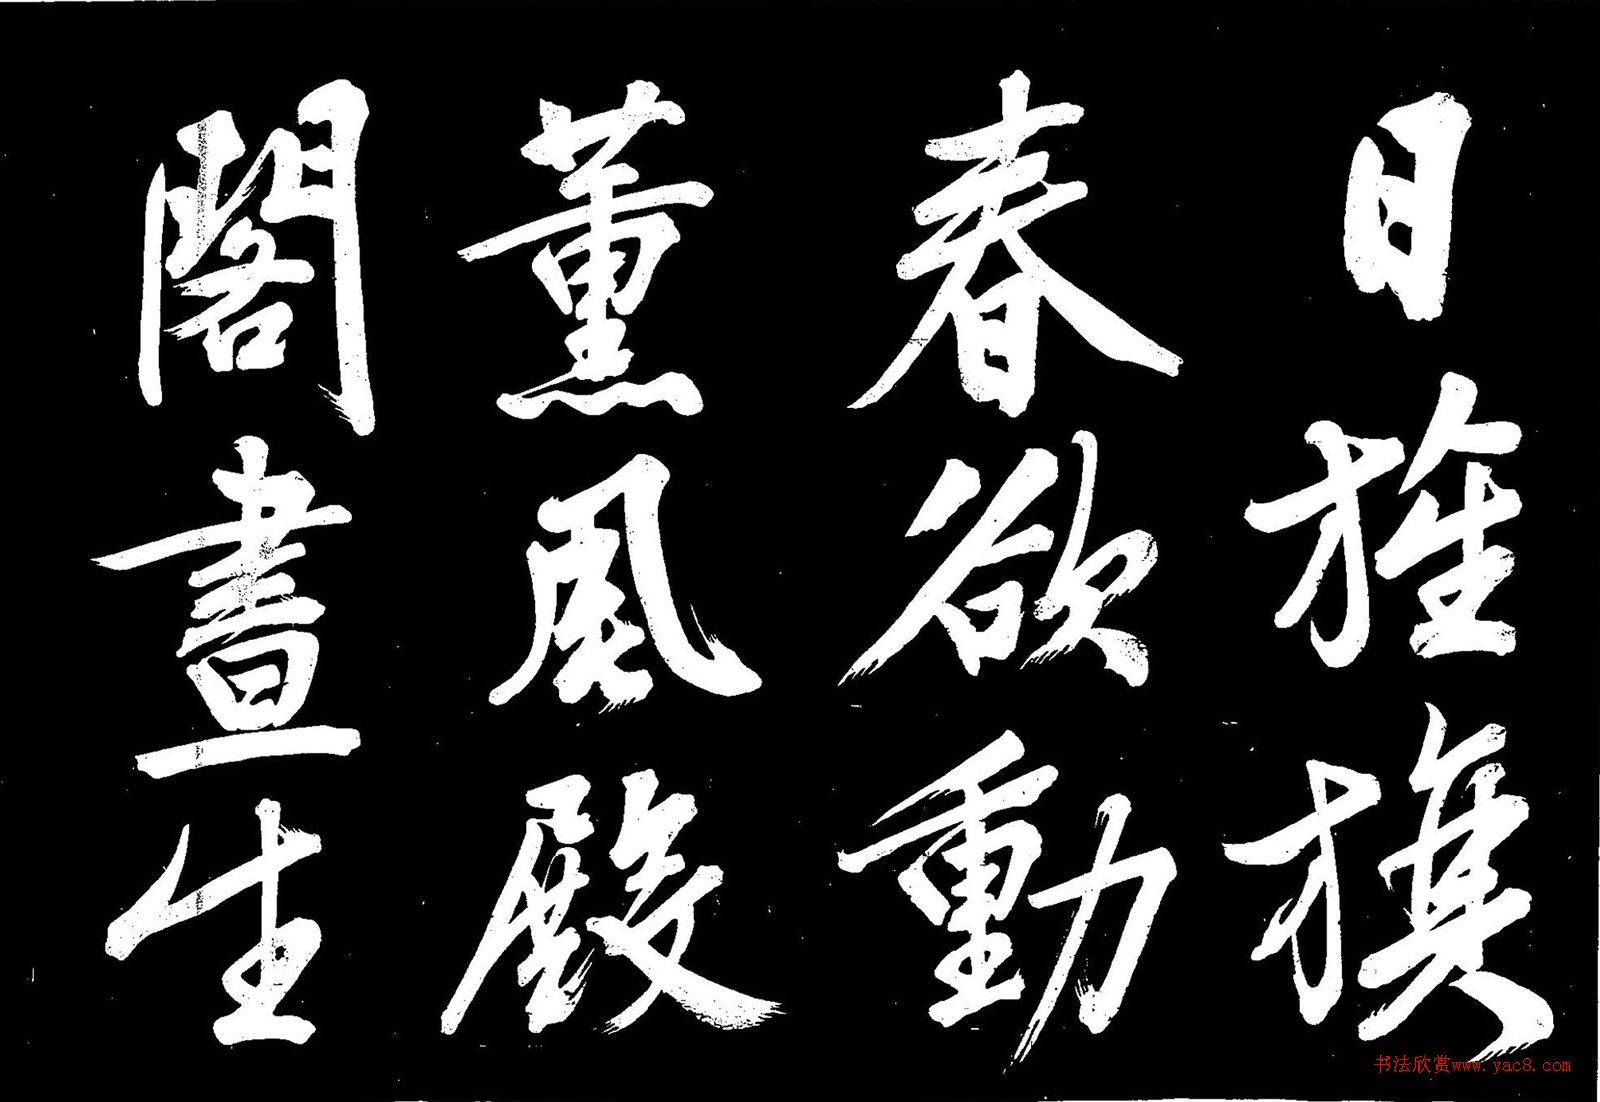 日旌旗
春欲動
薰風殿
閣晝生
书法欣赏www.yac8.com